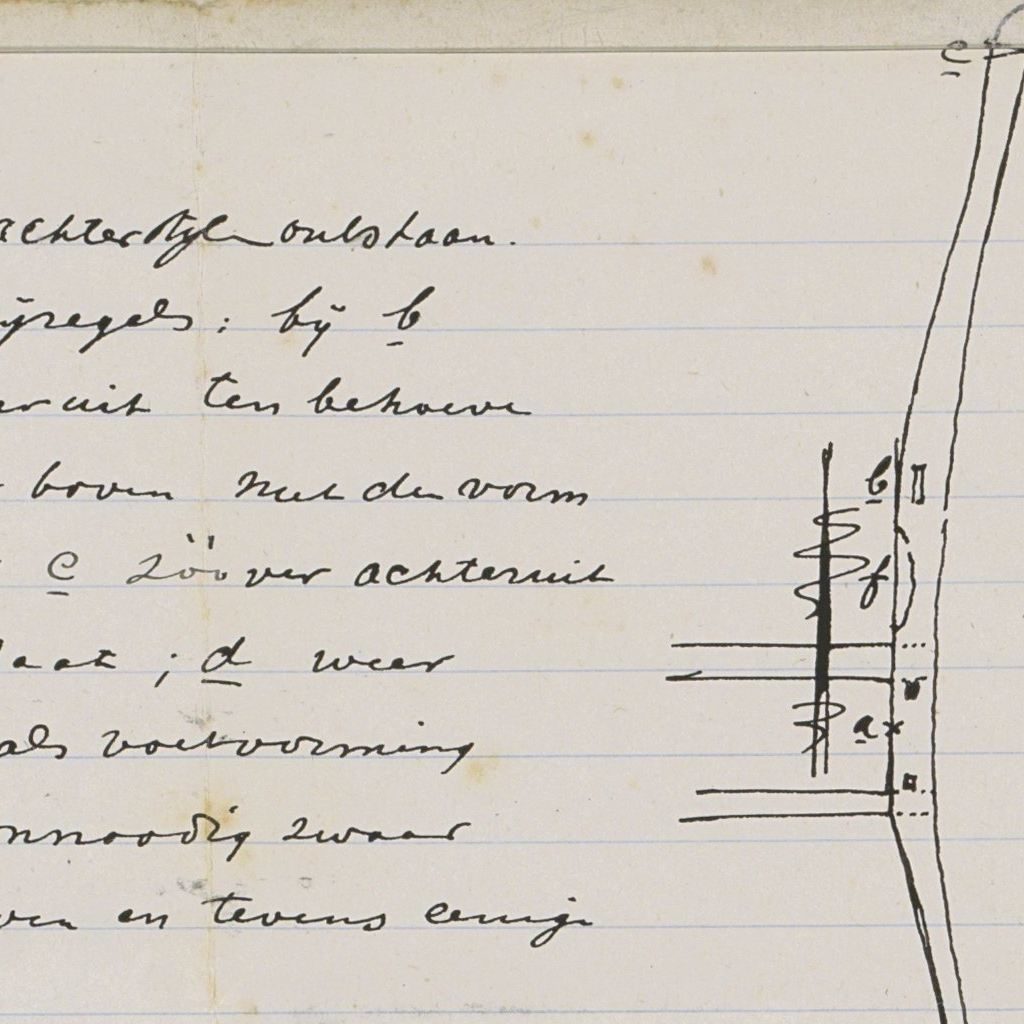 achterstijlen ontstaan.
ijregels; bij b
eruit ten behoeve
boven met den vorm
c zóóver achteruit
laat; d weer
als voetvorming
onnoodig zwaar
ven en tevens eenige
c
b
f
a x